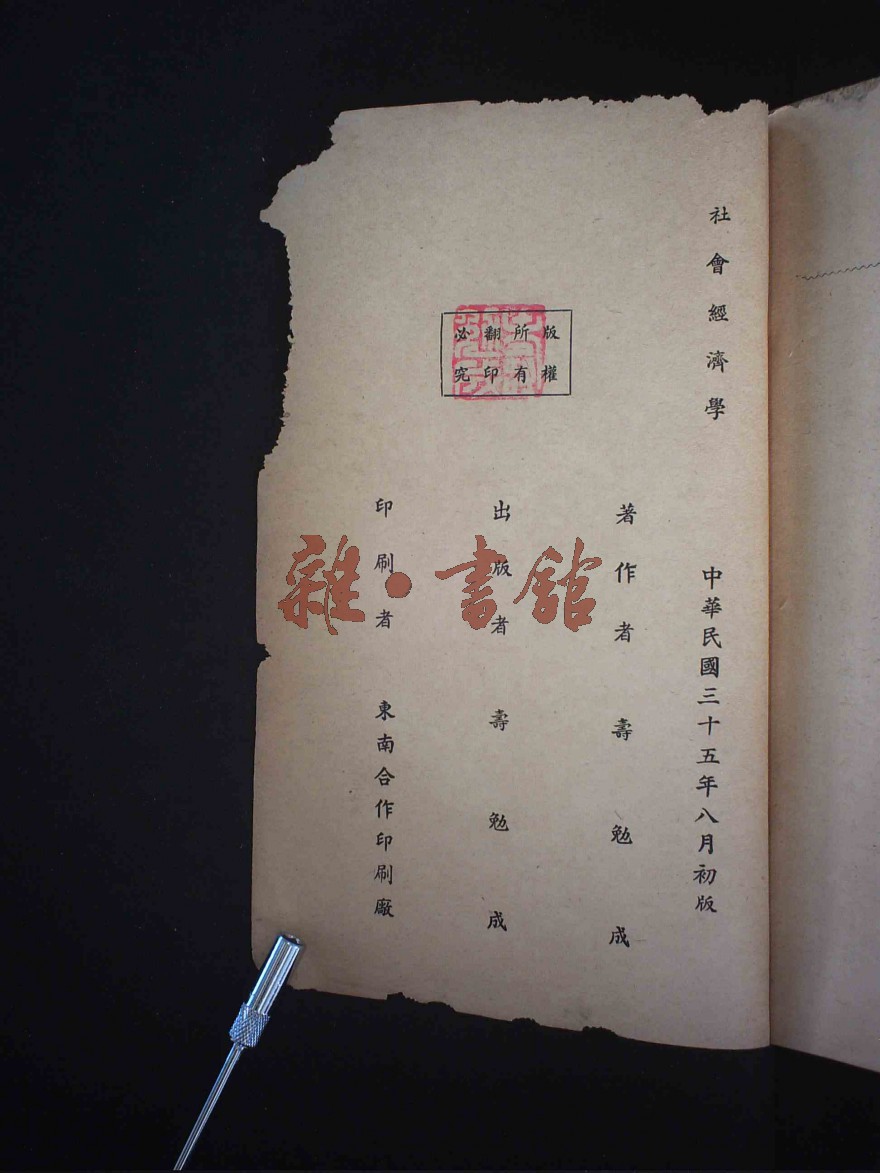 社會經濟學
中華民國三十五年八月初版
版權
所有
翻印
必究
著作者 壽勉成
出版者 壽勉成
印刷者 東南合作印刷廠
雜·書館